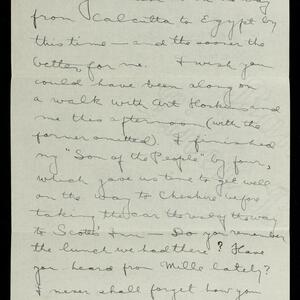 from Calcutta to Egypt by
this time — and the sooner the
better for me. I wish you
could have been along on
a walk with Art Hoskins and
me this afternoon (with the
former omitted). I finished
my "Son of the People" by four,
which gave us time to get well
on the way to Cheshire before
taking the car thereby the way
to Scott's Inn — Do you remember
the lunch we had there? Have
you heard from Mille lately?
I never shall forget how you